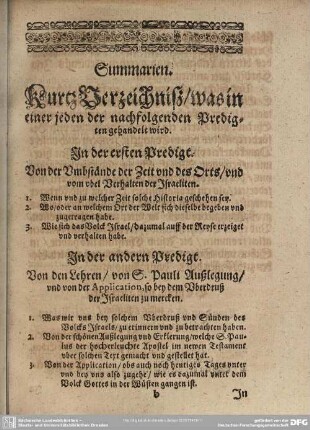 Summarien.
Kurtz Verzeichniß / was in
einer jeden der nachfolgenden Predig-
ten gehandelt wird.
In der ersten Predigt.
Von der Vmbstände der Zeit vnd des Orts / vnd
vom vbel Verhalten der Israeliten.
1. Wenn vnd zu welcher Zeit solche Historia geschehen sey.
2. Wo / oder an welchem Ort der Welt sich dieselbe begeben vnd
zugetragen habe.
3. Wie sich das Volck Israel / dazumal auff der Reyse erzeiget
vnd verhalten habe.
In der andern Predigt.
Von den Lehren / von S. Pauli Außlegung /
vnd von der Application, so bey dem Vberdruß
der Israeliten zu mercken.
1. Was wir vns bey solchem Vberdruß vnd Sünden des
Volcks Israels / zu erinnern vnd zu betrachten haben.
2. Von der schönen Außlegung vnd Erklerung / welche S. Pau-
lus der hocherleuchte Apostel im newen Testament
vber solchen Text gemacht vnd gestellet hat.
3. Von der Application / obs auch noch heutiges Tages vnter
vnd bey vns also zugehe / wie es dazumal vnter dem
Volck Gottes in der Wüsten gangen ist.
b In